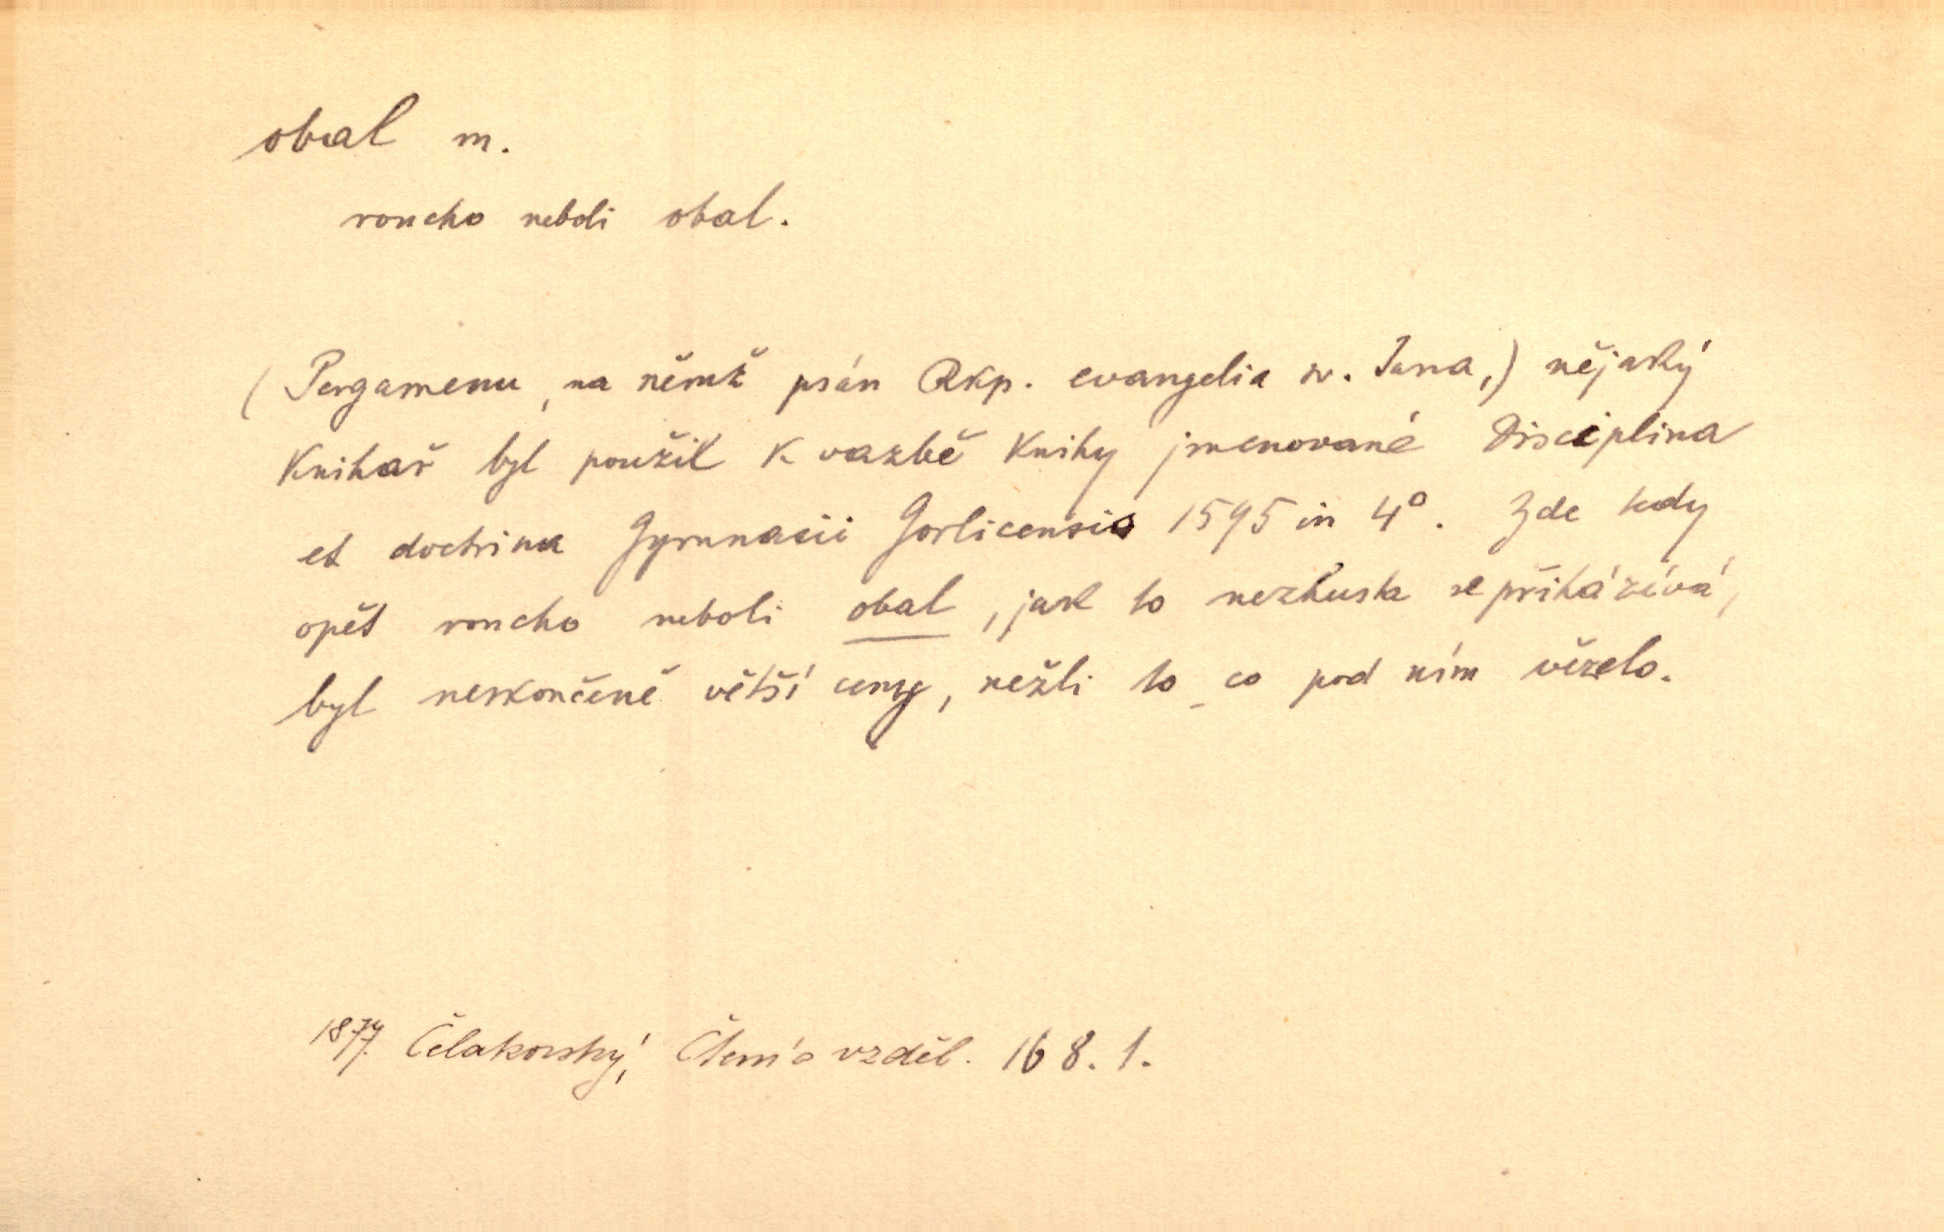 obal m.
roucho neboli obal.
(Pergamenu, na němž psán Rkp. evangelia sv. Jana,) nějaký
knihař byl použil k vazbě knihy jmenované Disciplina
et doctrina Gymnasii Gorlicensis 1595 in 4°. Zde tedy
opět roucho neboli obal, jak to nezhusta se přiházívá,
byl neskončeně větší ceny, nežli to co pod ním vězelo.
1877. Čelakovský, Čtení o vzděl. 168.1.